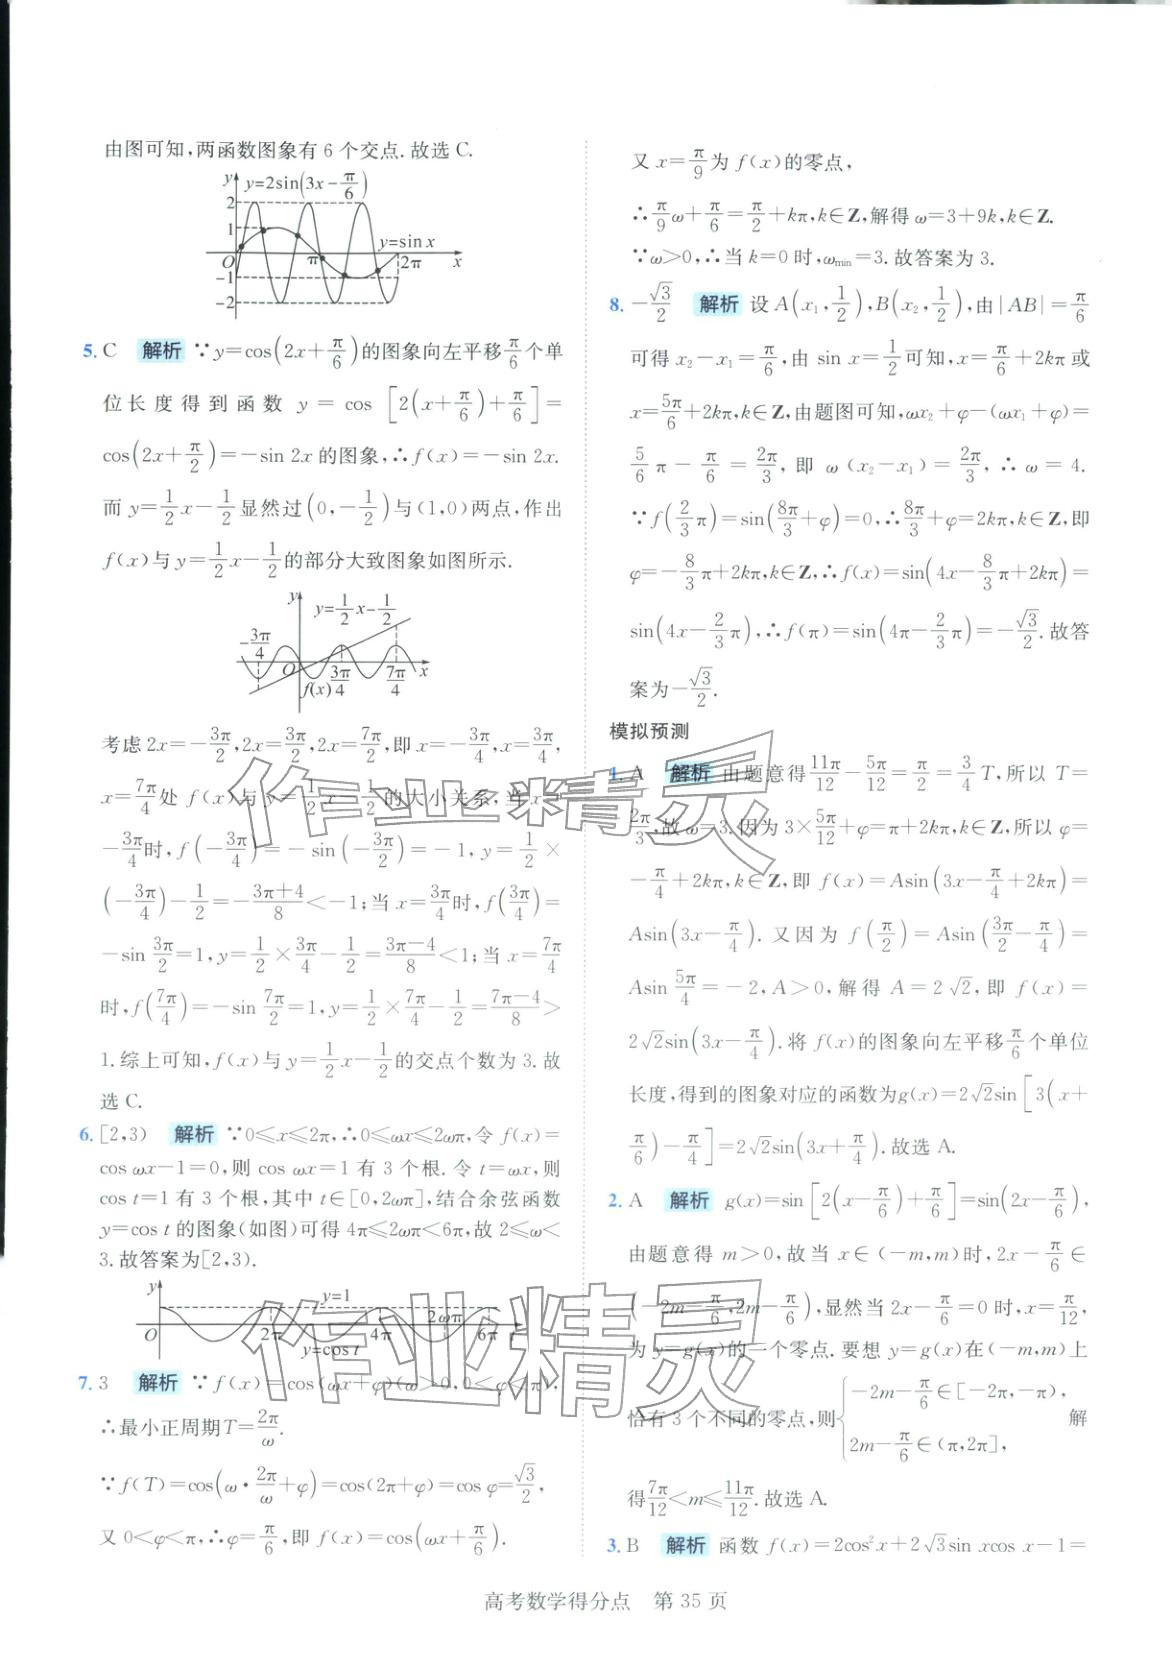 由图可知,两函数图象有6个交点.故选C.
y
y=2sin(3x-π/6)
2
1
y=sin x
O
π
2π
x
-1
-2
5. C 解析 ∵y=cos(2x+π/6)的图象向左平移π/6个单
位长度得到函数 y = cos [2(x+π/6)+π/6]=
cos(2x+π/2)=-sin 2x的图象,∴f(x)=-sin 2x.
而y=1/2x-1/2显然过(0,-1/2)与(1,0)两点,作出
f(x)与y=1/2x-1/2的部分大致图象如图所示.
y
y=1/2x-1/2
-3π/4
O
3π/4
7π/4
x
f(x)
考虑2x=-3π/2,2x=3π/2,2x=7π/2,即x=-3π/4,x=3π/4,
x=7π/4处f(x)与y=1/2x-1/2的大小关系,当x=
-3π/4时,f(-3π/4)=-sin(-3π/2)=-1,y=1/2×
(-3π/4)-1/2=-3π+4/8<-1;当x=3π/4时,f(3π/4)=
-sin 3π/2=1,y=1/2×3π/4-1/2=3π-4/8<1;当x=7π/4
时,f(7π/4)=-sin 7π/2=1,y=1/2×7π/4-1/2=7π-4/8>
1.综上可知,f(x)与y=1/2x-1/2的交点个数为3.故
选C.
6. [2,3) 解析 ∵0≤x≤2π,∴0≤ωx≤2ωπ,令f(x)=
cos ωx-1=0,则cos ωx=1有3个根.令t=ωx,则
cos t=1有3个根,其中t∈[0,2ωπ],结合余弦函数
y=cos t的图象(如图)可得4π≤2ωπ<6π,故2≤ω<
3.故答案为[2,3).
y
y=1
O
2π
4π
2ωπ
6π
y=cos t
7. 3 解析 ∵f(x)=cos(ωx+φ)(ω>0,0<φ<π),
∴最小正周期T=2π/ω.
∵f(T)=cos(ω·2π/ω+φ)=cos(2π+φ)=cos φ=√3/2,
又0<φ<π,∴φ=π/6,即f(x)=cos(ωx+π/6).
又x=π/9为f(x)的零点,
∴π/9ω+π/6=π/2+kπ,k∈Z,解得ω=3+9k,k∈Z.
∵ω>0,∴当k=0时,ωmin=3.故答案为3.
8. -√3/2 解析 设A(x₁,1/2),B(x₂,1/2),由|AB|=π/6
可得x₂-x₁=π/6,由sin x=1/2可知,x=π/6+2kπ或
x=5π/6+2kπ,k∈Z,由题图可知,ωx₂+φ-(ωx₁+φ)=
5/6π-π/6=2π/3,即ω(x₂-x₁)=2π/3,∴ω=4.
∵f(2/3π)=sin(8π/3+φ)=0,∴8π/3+φ=2kπ,k∈Z,即
φ=-8/3π+2kπ,k∈Z,∴f(x)=sin(4x-8/3π+2kπ)=
sin(4x-2/3π),∴f(π)=sin(4π-2/3π)=-√3/2.故答
案为-√3/2.
模拟预测
1. A 解析 由题意得11π/12-5π/12=π/2=3/4T,所以T=
2π/3,故ω=3.因为3×5π/12+φ=π+2kπ,k∈Z,所以φ=
-π/4+2kπ,k∈Z,即f(x)=Asin(3x-π/4+2kπ)=
Asin(3x-π/4).又因为f(π/2)=Asin(3π/2-π/4)=
Asin 5π/4=-2,A>0,解得A=2√2,即f(x)=
2√2sin(3x-π/4).将f(x)的图象向左平移π/6个单位
长度,得到的图象对应的函数为g(x)=2√2sin[3(x+
π/6)-π/4]=2√2sin(3x+π/4).故选A.
2. A 解析 g(x)=sin[2(x-π/6)+π/6]=sin(2x-π/6),
由题意得m>0,故当x∈(-m,m)时,2x-π/6∈
(-2m-π/6,2m-π/6),显然当2x-π/6=0时,x=π/12,
为y=g(x)的一个零点.要想y=g(x)在(-m,m)上
恰有3个不同的零点,则{-2m-π/6∈[-2π,-π), 2m-π/6∈(π,2π], 解
得7π/12<m≤11π/12.故选A.
3. B 解析 函数f(x)=2cos²x+2√3sin xcos x-1=
高考数学得分点 第35页
作业精灵
作业精灵